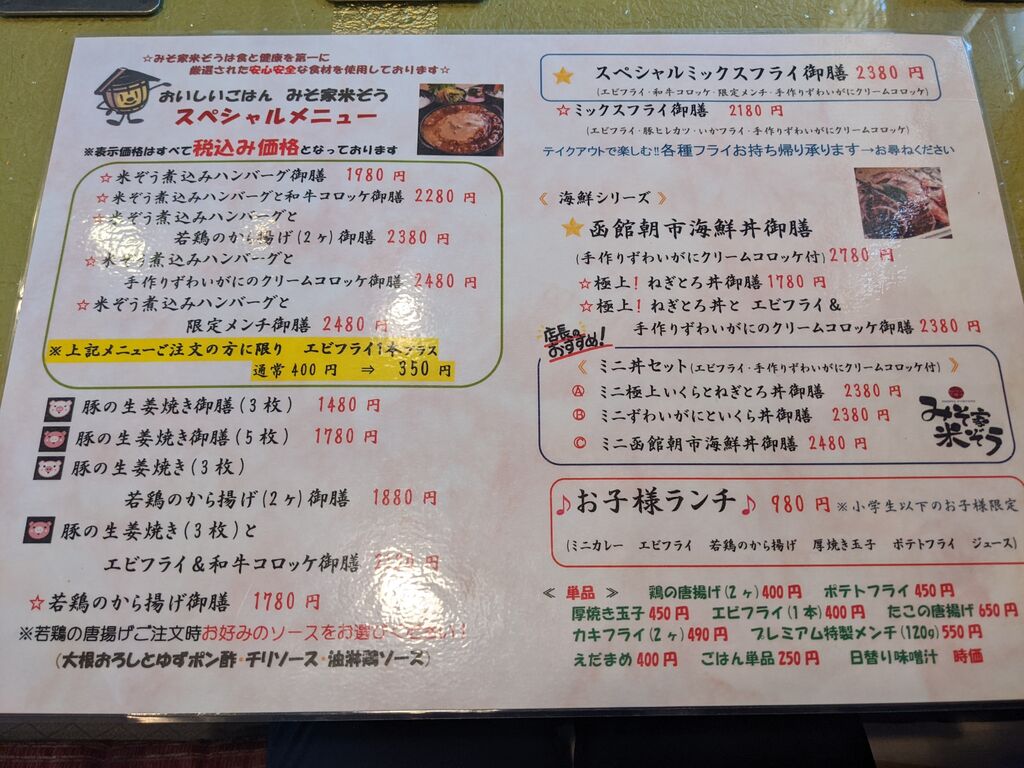 ☆みそ家米ぞうは食と健康を第一に
厳選された安心安全な食材を使用しております☆
おいしいごはん みそ家米ぞう
スペシャルメニュー
※表示価格はすべて税込み価格となっております
☆米ぞう煮込みハンバーグ御膳 1980円
☆米ぞう煮込みハンバーグと和牛コロッケ御膳 2280円
☆米ぞう煮込みハンバーグと
若鶏のから揚げ(2ヶ)御膳 2380円
☆米ぞう煮込みハンバーグと
手作りずわいがにのクリームコロッケ御膳 2480円
☆米ぞう煮込みハンバーグと
限定メンチ御膳 2480円
※上記メニューご注文の方に限り エビフライ1本プラス
通常400円 ⇒ 350円
豚の生姜焼き御膳(3枚) 1480円
豚の生姜焼き御膳(5枚) 1780円
豚の生姜焼き(3枚)
若鶏のから揚げ(2ヶ)御膳 1880円
豚の生姜焼き(3枚)と
エビフライ&和牛コロッケ御膳 円
☆若鶏のから揚げ御膳 1780円
※若鶏の唐揚げご注文時お好みのソースをお選びください!
(大根おろしとゆずポン酢・チリソース・油淋鶏ソース)
★スペシャルミックスフライ御膳 2380円
(エビフライ・和牛コロッケ・限定メンチ・手作りずわいがにクリームコロッケ)
☆ミックスフライ御膳 2180円
(エビフライ・豚ヒレカツ・いかフライ・手作りずわいがにクリームコロッケ)
テイクアウトで楽しむ!!各種フライお持ち帰り承ります→お尋ねください
《海鮮シリーズ》
★函館朝市海鮮丼御膳
(手作りずわいがにクリームコロッケ付)2780円
☆極上!ねぎとろ丼御膳1780円
☆極上!ねぎとろ丼と エビフライ&
手作りずわいがにのクリームコロッケ御膳 2380円
店長のおすすめ!
《ミニ丼セット(エビフライ・手作りずわいがにクリームコロッケ付)》
Ⓐ ミニ極上いくらとねぎとろ丼御膳 2380円
Ⓑ ミニずわいがにといくら丼御膳 2380円
Ⓒ ミニ函館朝市海鮮丼御膳 2480円
みそ家
米ぞう
♪お子様ランチ♪ 980円 ※小学生以下のお子様限定
(ミニカレー エビフライ 若鶏のから揚げ 厚焼き玉子 ポテトフライ ジュース)
≪単品≫ 鶏の唐揚げ(2ヶ)400円 ポテトフライ450円
厚焼き玉子450円 エビフライ(1本)400円 たこの唐揚げ650円
カキフライ(2ヶ)490円 プレミアム特製メンチ(120g)550円
えだまめ400円 ごはん単品250円 日替り味噌汁 時価